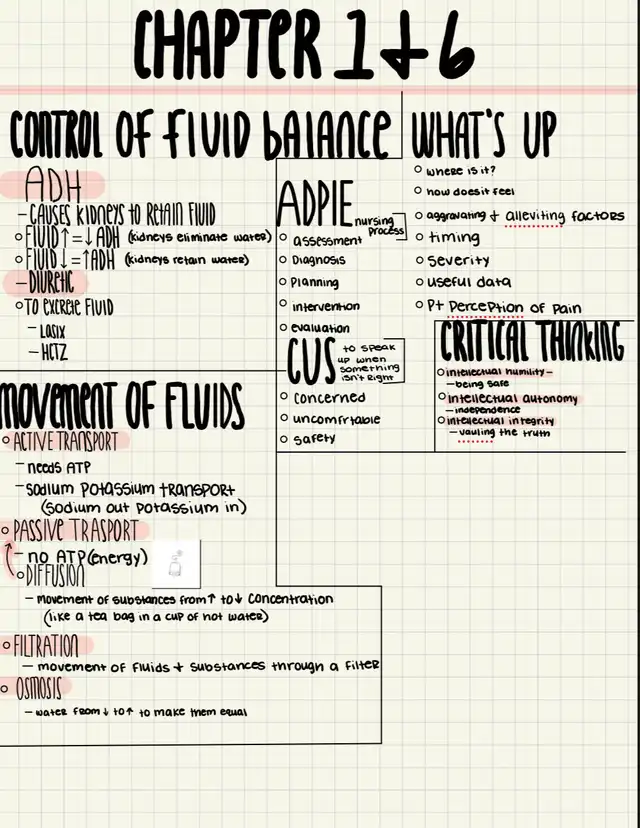 CHAPTER 1 & 6
CONTROL OF FLUID BALANCE
ADH
- CAUSES KIDNEYS TO RETAIN FLUID
○ FLUID ↑ = ↓ ADH (kidneys eliminate water)
○ FLUID ↓ = ↑ ADH (kidneys retain water)
- DIURETIC
○ TO EXCRETE FLUID
- LASIX
- HCTZ
MOVEMENT OF FLUIDS
○ ACTIVE TRANSPORT
- needs ATP
- sodium potassium transport
(sodium out potassium in)
○ PASSIVE TRASPORT
- no ATP (energy)
○ DIFFUSION
- movement of substances from ↑ to ↓ concentration
(like a tea bag in a cup of hot water)
○ FILTRATION
- movement of fluids + substances through a filter
○ OSMOSIS
- water from ↓ to ↑ to make them equal
ADPIE nursing process
○ assessment
○ Diagnosis
○ Planning
○ intervention
○ evaluation
CUS to speak
up when
something
isn't right
○ Concerned
○ uncomfrtable
○ safety
WHAT'S UP
○ where is it?
○ how does it feel
○ aggravating + alleviting factors
○ timing
○ severity
○ useful data
○ Pt perception of pain
CRITICAL THINKING
○ intellectual humility -
- being safe
○ intellectual autonomy
- independence
○ intellectual integrity
- vauling the truth